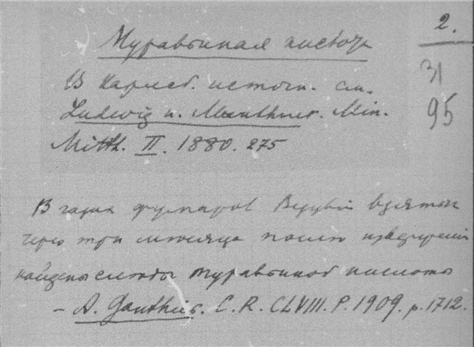 2.
Муравьиная кислота
31
В Карлсб. источн. см.
95
Ludwig u. Mauthner. Min.
Mitth. II. 1880. 275
В газах фумарол Везувия взятых
через три месяца после извержения
найдены следы муравьиной кислоты
– A. Gauthier. C. R. CLVIII. P. 1909. p. 1712.